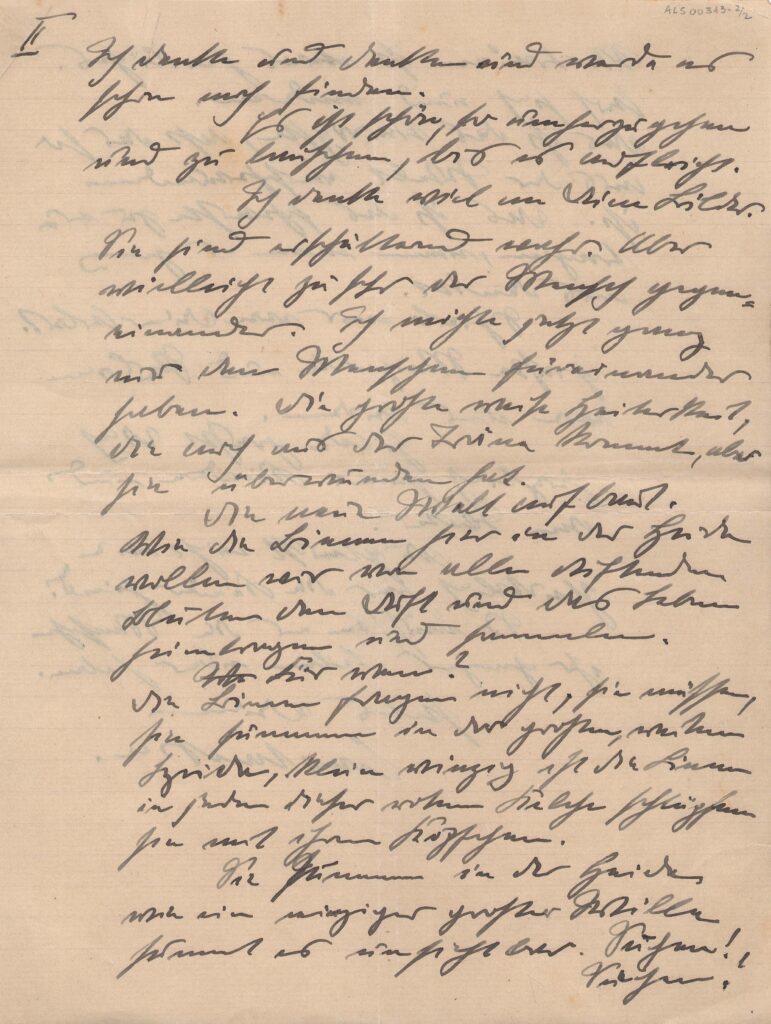 ALS00313-2/2
II
Ich denke und denke und werde es
schon noch finden.
Es ist schön, so umherzugehen
und zu lauschen, bis es aufbricht.
Ich denke viel an Deine Bilder.
Sie sind erschütternd wahr. Aber
vielleicht zu sehr der Mensch gegen=
einander. Ich möchte jetzt ganz
nur den Menschen füreinander
haben. Die große weise Heiterkeit,
die noch aus der Träne kommt, aber
sie überwunden hat.
Die neue Welt aufbaut.
Wie die Bienen hier in der Heide
wollen wir von allen duftenden
Blüten den Duft und das Leben
heimtragen und sammeln.
Für wen?
Die Bienen fragen nicht, sie müssen,
sie summen in der großen, weiten
Heide, klein winzig ist die Biene
in jeden dieser roten Kelche schlüpfen
sie mit ihrem Köpfchen.
Sie summen in der Heide
wie ein einziger großer Wille
summt es unsichtbar. Suchen!
Suchen!